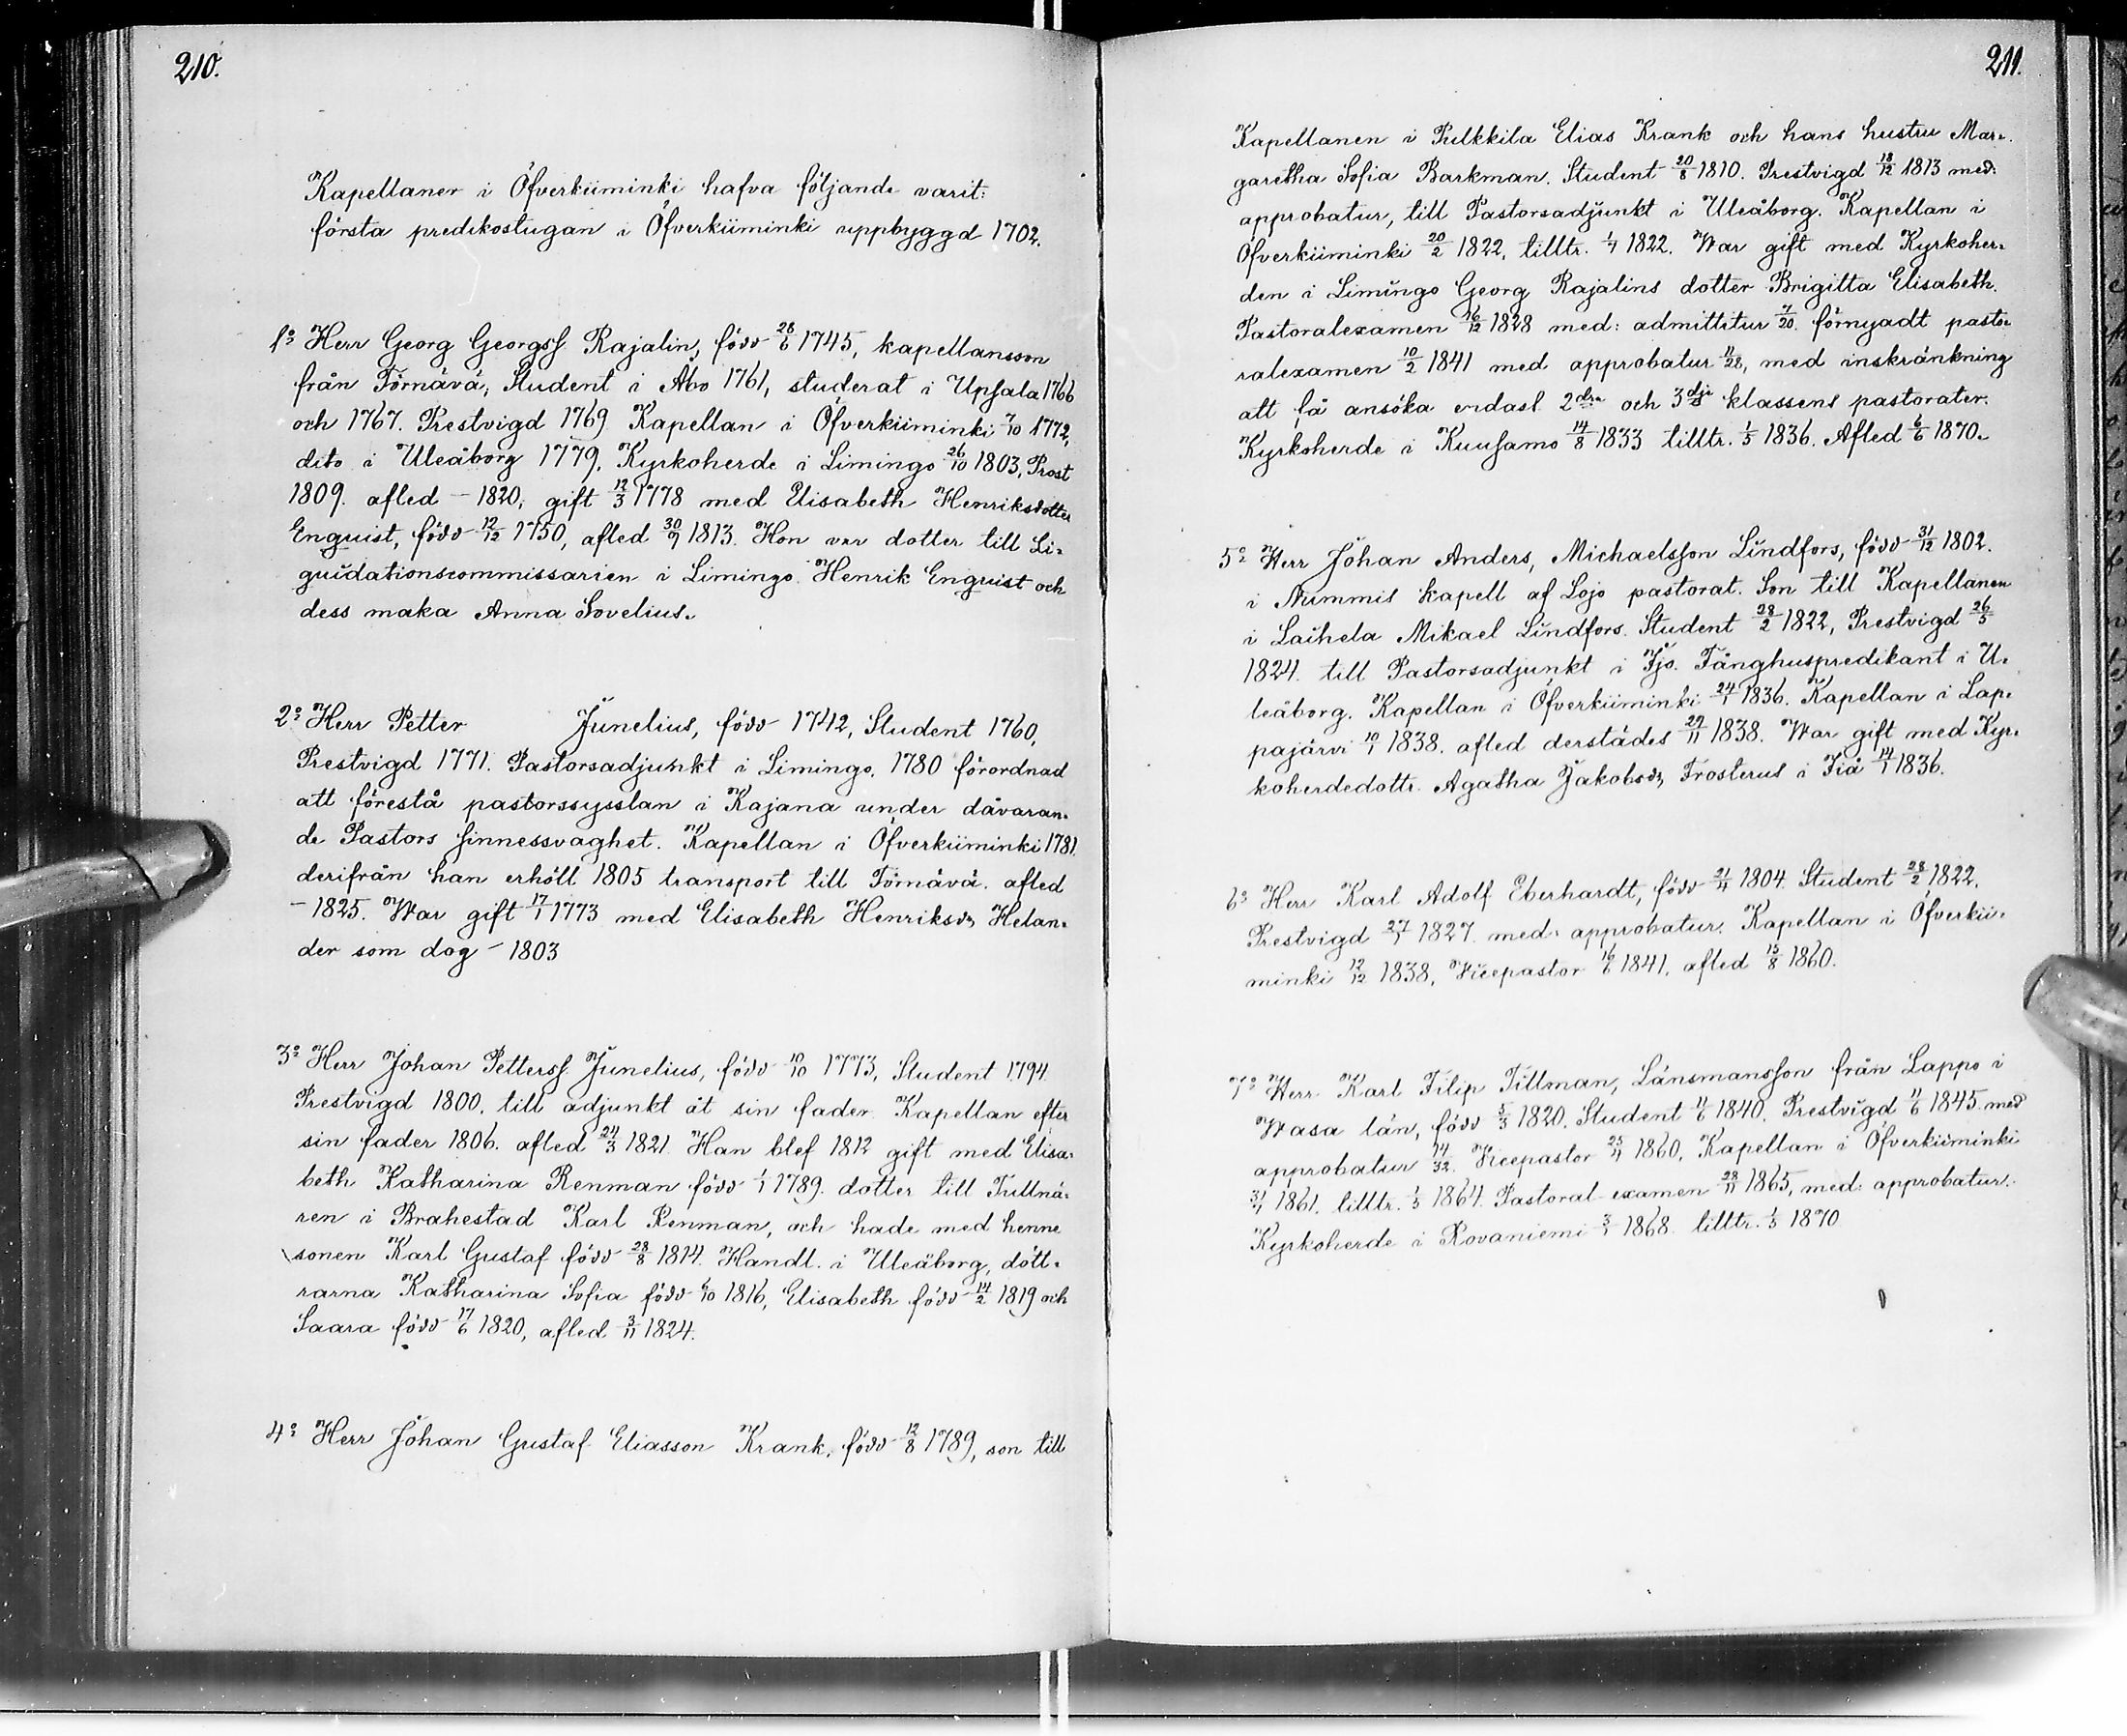 210.
Kapellaner i Öfverkiiminki hafva följande varit:
första predikostugan i Öfverkiiminki uppbyggd 1702.
1:o Herr Georg Georgsf Rajalin, född 28/6 1745, kapellansson
från Törnävä, Student i Åbo 1761, studerat i Upsala 1766
och 1767. Prestvigd 1769. Kapellan i Öfverkiiminki 7/10 1772,
dito i Uleåborg 1779, Kyrkoherde i Limingo 26/10 1803, Prost
1809. afled – 1820, gift 12/3 1778 med Elisabeth Henriksdotter
Enquist, född 12/12 1750, afled 30/9 1813. Hon var dotter till Li-
quidationscommissarien i Limingo Henrik Enquist och
dess maka Anna Sovelius.
2:o Herr Petter Junelius, född 1742, Student 1760,
Prestvigd 1771. Pastorsadjunkt i Limingo, 1780 förordnad
att förestå pastorssysslan i Kajana under dåvaran-
de Pastors sinnessvaghet. Kapellan i Öfverkiiminki 1781.
derifrån han erhöll 1805 transport till Törnävä. afled
– 1825. War gift 17/1 1773 med Elisabeth Henriksdr Helan-
der som dog – 1803
3:o Herr Johan Pettersf Junelius, född 10/10 1773, Student 1794.
Prestvigd 1800. till adjunkt åt sin fader. Kapellan efter
sin fader 1806. afled 24/3 1821. Han blef 1812 gift med Elisa-
beth Katharina Renman född 1/1 1789. dotter till Tullnä-
ren i Brahestad Karl Renman, och hade med henne
sonen Karl Gustaf född 28/8 1814. Handl. i Uleåborg, dött-
rarna Katharina Sofia född 6/10 1816, Elisabeth född 14/2 1819 och
Saara född 17/6 1820, afled 3/11 1824.
4:o Herr Johan Gustaf Eliasson Krank, född 12/8 1789, son till
211.
Kapellanen i Pulkkila Elias Krank och hans hustru Mar-
garetha Sofia Barkman. Student 20/8 1810. Prestvigd 18/12 1813 med:
approbatur, till Pastorsadjunkt i Uleåborg. Kapellan i
Öfverkiiminki 20/2 1822, tilltr. 1/4 1822. War gift med Kyrkoher-
den i Limingo Georg Rajalins dotter Brigitta Elisabeth.
Pastoralexamen 16/12 1828 med: admittitur 7/20. förnyadt pasto-
ralexamen 10/2 1841 med approbatur 11/28, med inskränkning
att få ansöka endast 2dra och 3dje klassens pastorater.
Kyrkoherde i Kuusamo 14/8 1833 tilltr. 1/5 1836. Afled 6/6 1870.
5:o Herr Johan Anders, Michaelsson Lindfors, född 31/12 1802.
i Nummis kapell af Lojo pastorat. Son till Kapellanen
i Laihela Mikael Lindfors. Student 28/2 1822, Prestvigd 26/5
1824. till Pastorsadjunkt i Ijo. Fånghuspredikant i U-
leåborg. Kapellan i Öfverkiiminki 24/1 1836. Kapellan i Lap-
pajärvi 10/1 1838. afled derstädes 29/11 1838. War gift med Kyr-
koherdedottr. Agatha Jakobsdr Frosterus i Iiå 14/1 1836.
6:o Herr Karl Adolf Eberhardt, född 21/4 1804. Student 28/2 1822.
Prestvigd 27/1 1827. med: approbatur. Kapellan i Öfverkii-
minki 12/12 1838, Vicepastor 16/6 1841, afled 15/8 1860.
7:o Herr Karl Filip Tillman, Länsmansson från Lappo i
Wasa län, född 5/3 1820. Student 11/6 1840. Prestvigd 11/6 1845. med
approbatur 14/32. Vicepastor 25/4 1860, Kapellan i Öfverkiiminki
31/7 1861. tilltr. 1/5 1864. Pastoral-examen 28/11 1865, med: approbatur.
Kyrkoherde i Rovaniemi 3/1 1868. tilltr. 1/5 1870.